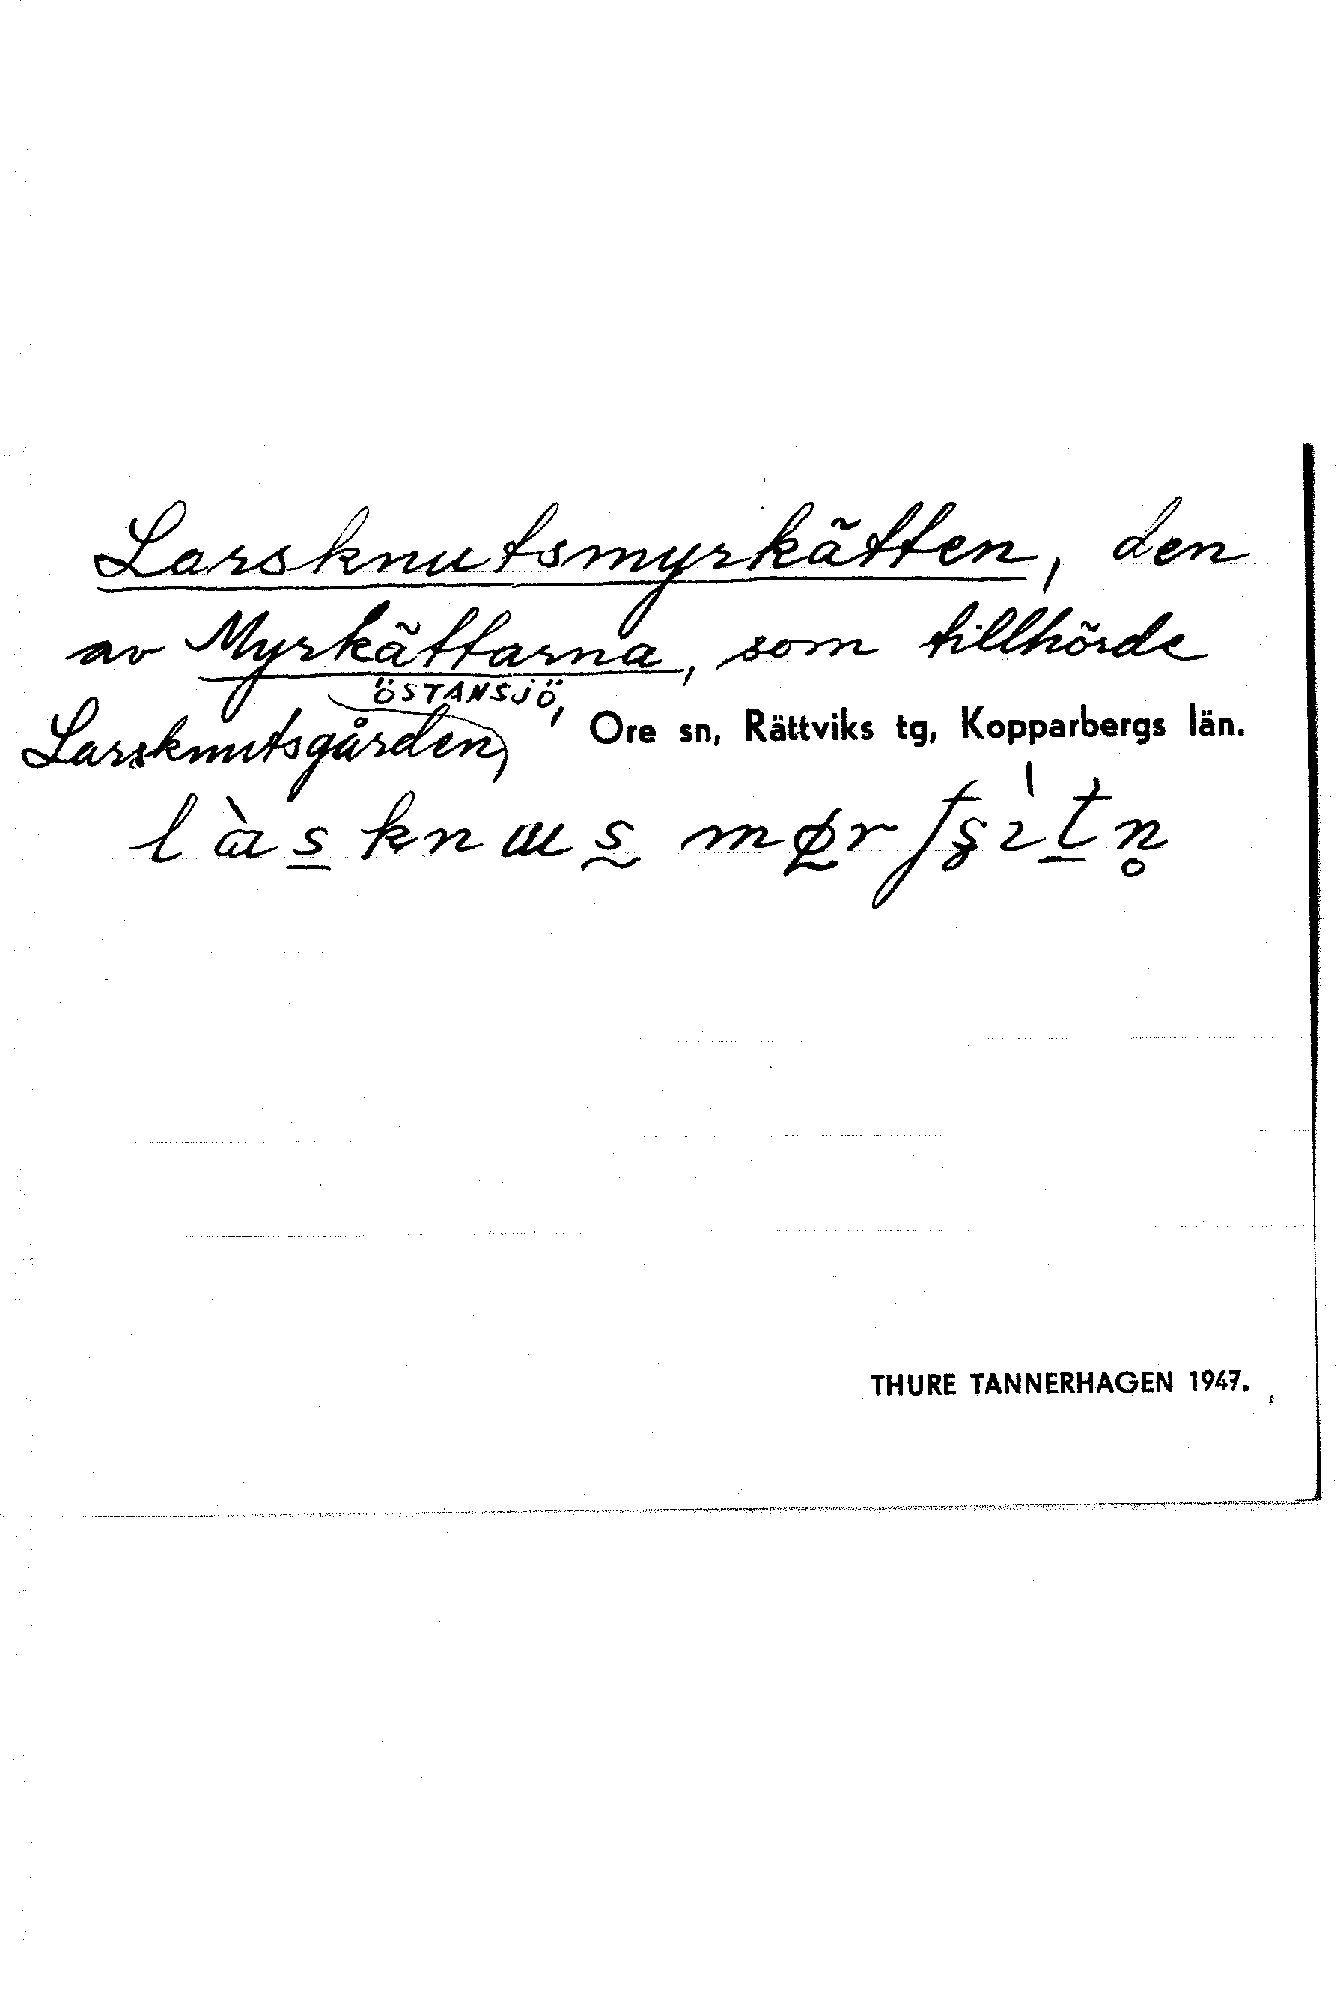 Larsknutsmyrkätten, den
av Myrkättarna, som tillhörde
ÖSTANSJÖ,
Larsknutsgården, Ore sn, Rättviks tg, Kopparbergs län.
THURE TANNERHAGEN 1947.